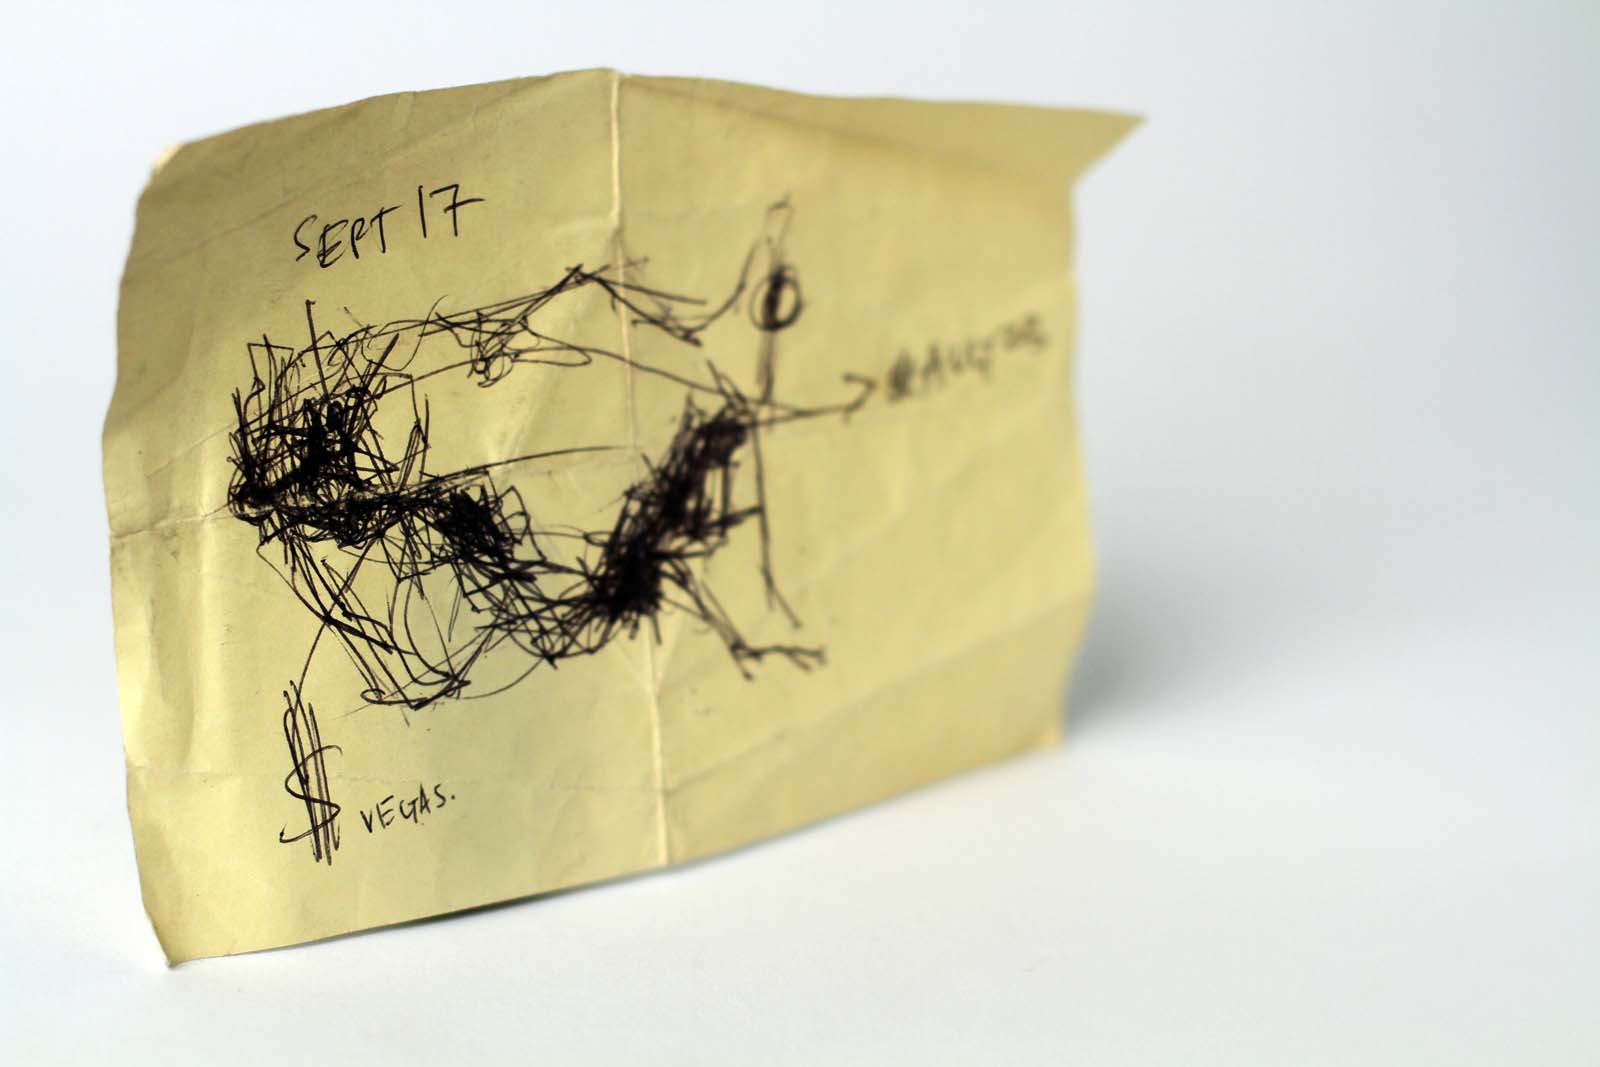 SEPT 17
$ VEGAS.